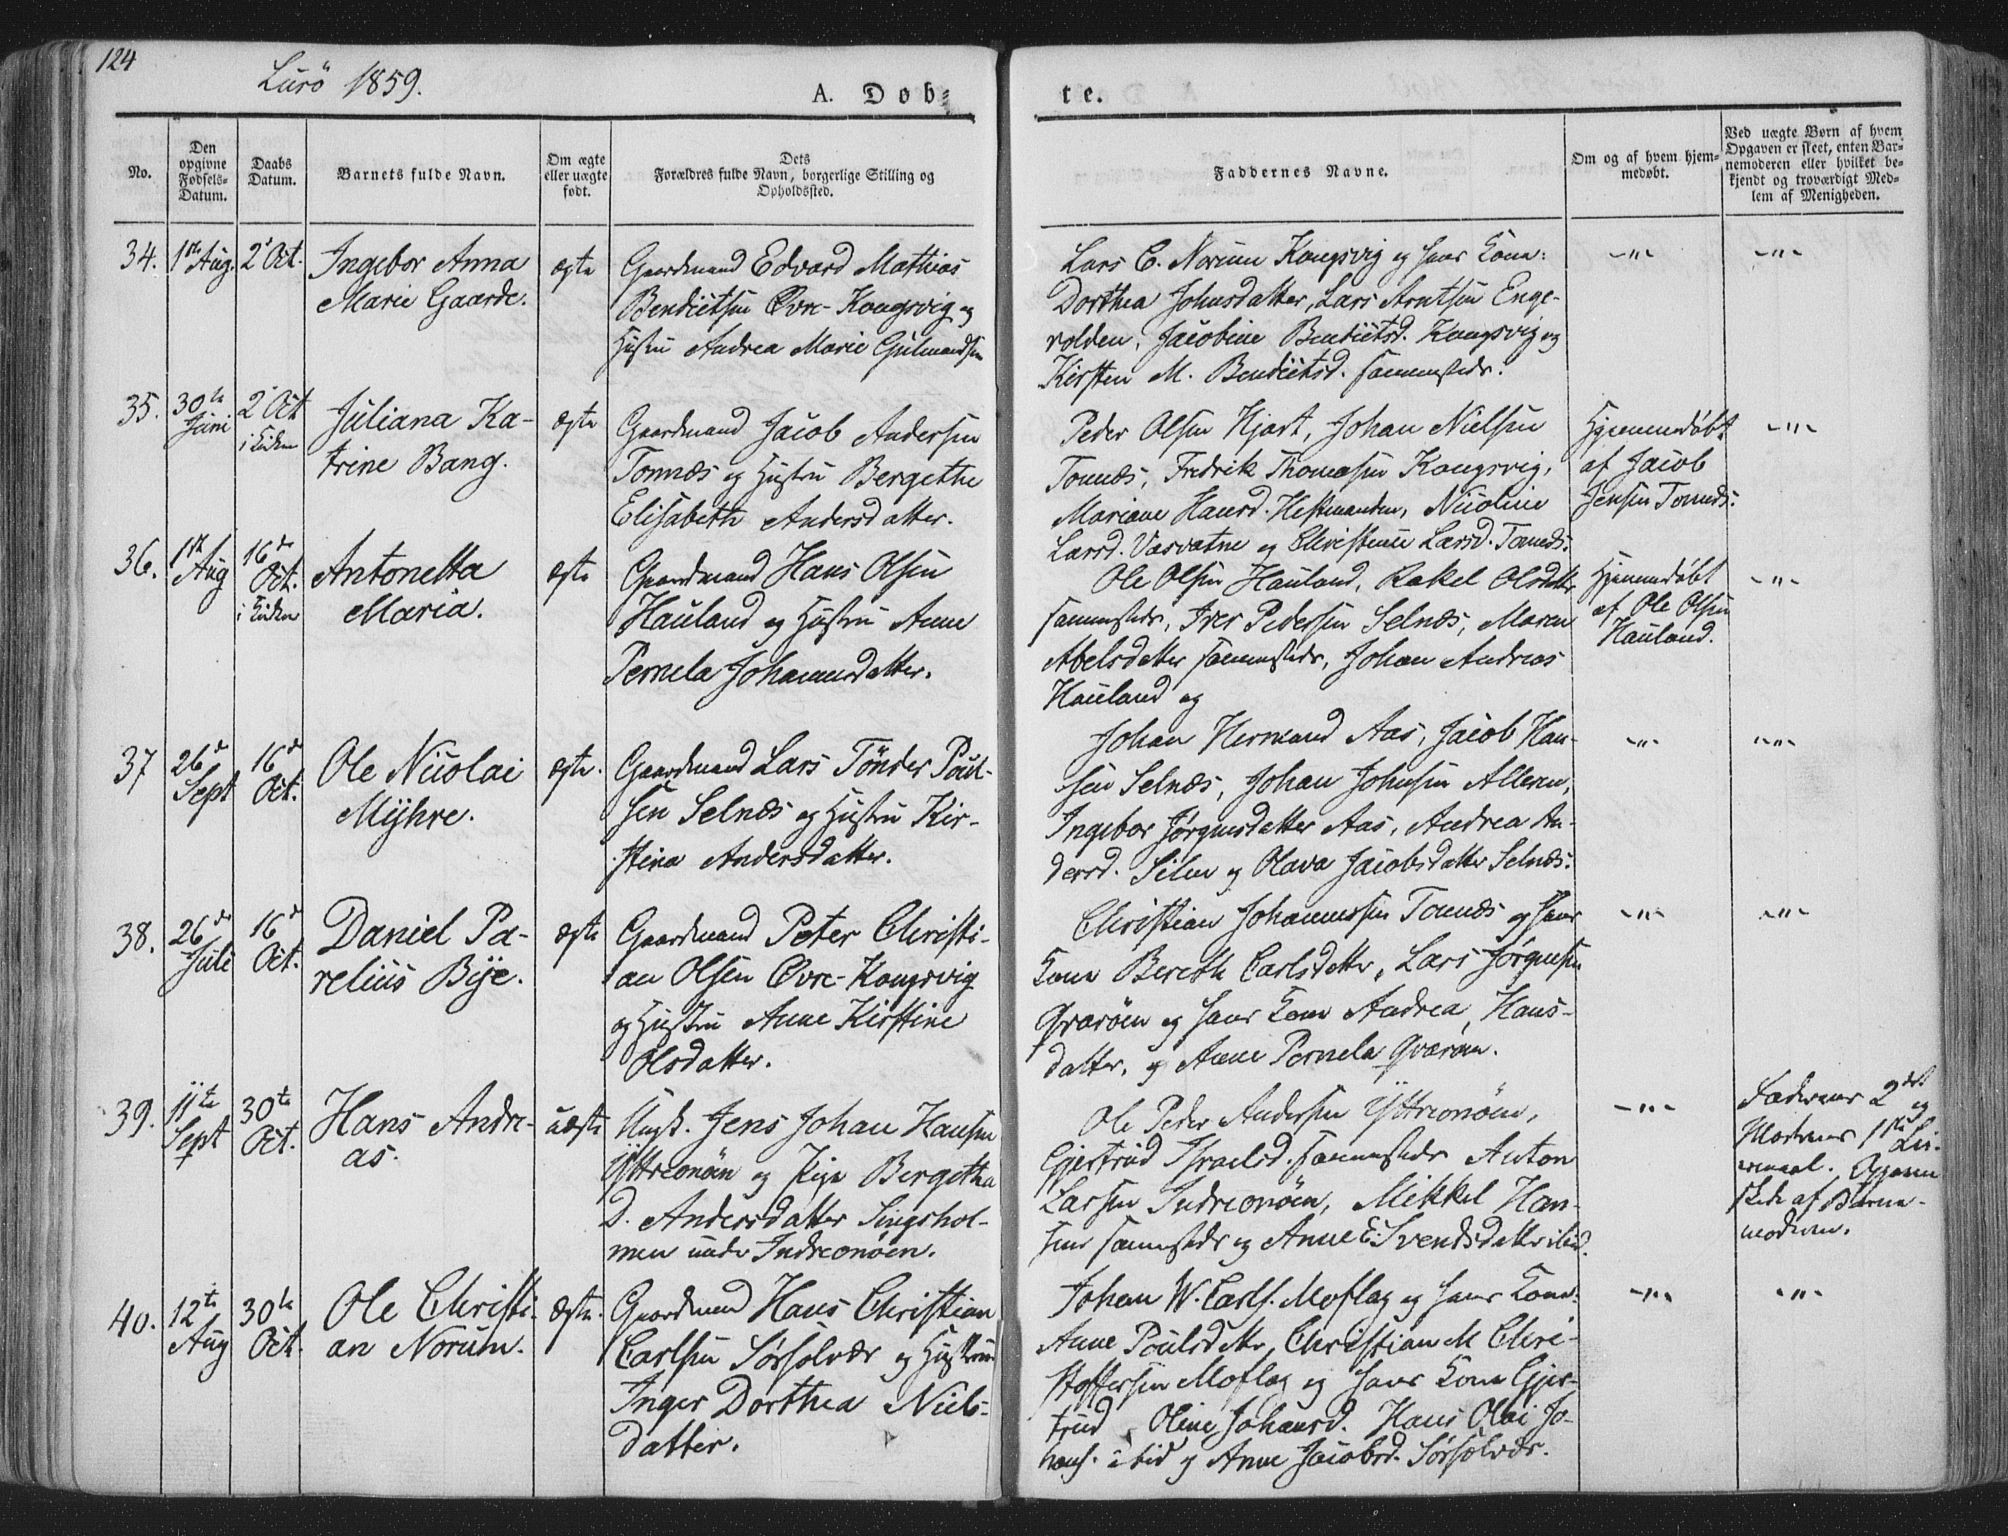 124
Lurö 1859.
A. Döb-
te.
No.
Den opgivne Fødsels-Datum.
Daabs Datum.
Barnets fulde Navn.
Om ægte eller uægte født.
Dets Forældres fulde Navn, borgerlige Stilling og Opholdssted.
Faddernes Navne.
Om og af hvem hjem-
medøbt.
Ved uægte Børn af hvem
Opgaven er skeet, enten Bar-
nemoderen eller hvilket be-
kjendt og troværdigt Med-
lem af Menigheden.
34.
1ste Aug.
2' Oct.
Ingebor Anna
Marie Gaarde.
ægte
Gaardmand Edvard Mathias
Bendictsen Øvre-Kongsvig og
Hustru Andrea Marie Gulmandsen
Lars C. Norum Kongsvig og hans Kone
Dorthea Johnsdatter, Lars Arntsen Enge-
volden, Jacobine Bendictsd. Kongsvig og
Kirsten M. Bendictsd. sammesteds.
-"-
-"-
35.
30te
Juni
2' Oct
i Kirken
Juliana Ka-
trine Bang.
ægte
Gaardmand Jacob Andersen
Tonnæs og Hustru Bergethe
Elisabeth Andersdatter.
Peder Olsen Hjart, Johan Nielsen
Tonnæs, Fredrik Thomasen Kongsvig,
Mariane Hansd. Hestmanden, Nicoline
Larsd. Vasvatne og Christense Larsd. Tonnæs.
Hjemmedøbt
af Jacob
Jensen Tonnæs.
-"-
36.
1ste
Aug
16de
Oct.
i Kirken
Antonetta
Maria.
ægte
Gaardmand Hans Olsen
Hauland og Hustru Anne
Pernela Johannesdatter.
Ole Olsen Hauland, Rakel Olsdatter
sammesteds, Iver Pedersen Selnæs, Maren
Abelsdatter sammesteds, Johan Andreas
Hauland og
Hjemmedøbt
af Ole Olsen
Hauland.
-"-
37
26d
Sept
16d
Oct.
Ole Nicolai
Myhre.
ægte.
Gaardmand Lars Tönder Poul-
sen Selnæs og Hustru Kir-
stina Andersdatter.
Johan Hermand Aas, Jacob Han-
sen Selnæs, Johan Johnsen Alleren,
Ingebor Jørgensdatter Aas, Andrea An-
dersd. Silen og Olava Jacobsdatter Selnæs.
-"-
-"-
38.
26de
Juli
16d
Oct.
Daniel Pa-
relius Bye.
ægte
Gaardmand Peter Christi-
an Olsen Øvre-Kongsvig
og Hustru Anne Kirstine
Olsdatter.
Christian Johannessen Tonnæs og hans
Kone Bereth Carlsdatter, Lars Jørgensen
Qvarøen og hans Kone Andrea Hans-
datter, og Anne Pernela Qvarøen.
-"-
-"-
39.
11te
Sept
30te
Oct.
Hans Andre-
as.
uægte
Ungk. Jens Johan Hansen
Yttreonøen og Pige Bergetha
D. Andersdatter Lingshol-
men under Indreonøen.
Ole Peder Andersen Yttreonøen,
Gjertrud Israelsd. sammesteds Anton
Larsen Indreonøen, Mikkel Han-
sen sammesteds og Anne E. Svendsdatter ibid.
-"-
Faderens 2det og
Moderens 1ste Lei-
ermaal. Opgaven
skede af Barne-
moderen.
40.
12te
Aug
30te
Oct.
Ole Christi-
an Norum.
ægte.
Gaardmand Hans Christian
Carlsen Sørsolvær og Hustru
Inger Dorthea Niels-
datter.
Johan W. Carls. Moflag og hans Kone
Anne Poulsdatter, Christian M. Chri-
stoffersen Moflag og hans Kone Gjer-
trud, Oline Johansd. Hans Olai Jo-
hans. ibid og Anne Jacobsd. Sørsolvær.
-"-
-"-